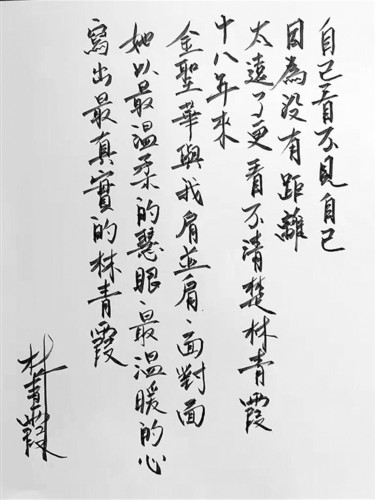 自己看不見自己
因為没有距離
太遠了更看不清楚林青霞
十八年來
金聖華與我肩並肩、面對面
她以最温柔的慧眼、最温暖的心
寫出最真實的林青霞
林青霞